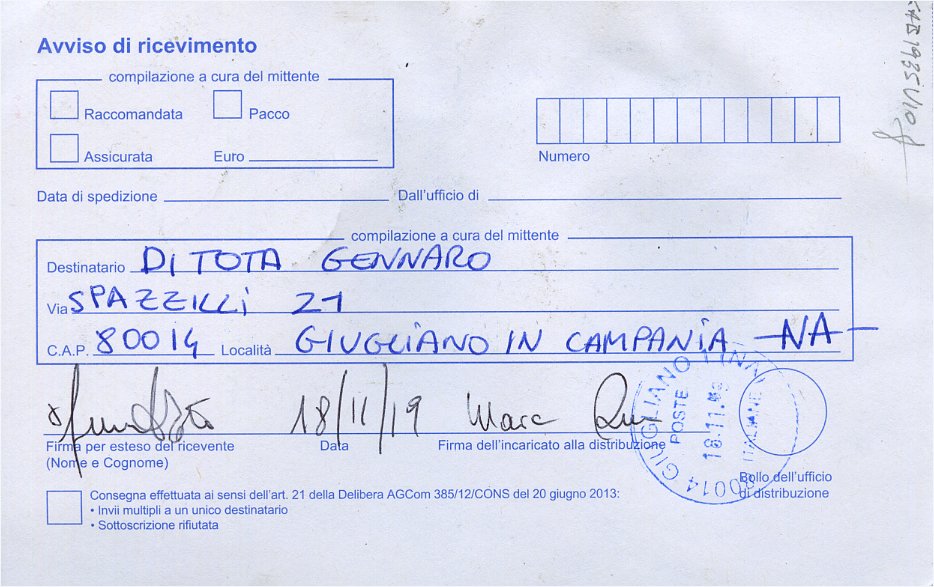 Avviso di ricevimento
compilazione a cura del mittente
Raccomandata Pacco
Assicurata Euro
Numero
Data di spedizione Dall'ufficio di
compilazione a cura del mittente
Destinatario DI TOTA GENNARO
Via SPAZZILLI 21
C.A.P. 80014 Località GIUGLIANO IN CAMPANIA -NA-
18/11/19 Marc
Firma per esteso del ricevente Data Firma dell'incaricato alla distribuzione
(Nome e Cognome)
80014 GIUGLIANO 1 (NA)
POSTE
18.11.
ITALIANE
Bollo dell'ufficio
di distribuzione
Consegna effettuata ai sensi dell'art. 21 della Delibera AGCom 385/12/CONS del 20 giugno 2013:
• Invii multipli a un unico destinatario
• Sottoscrizione rifiutata